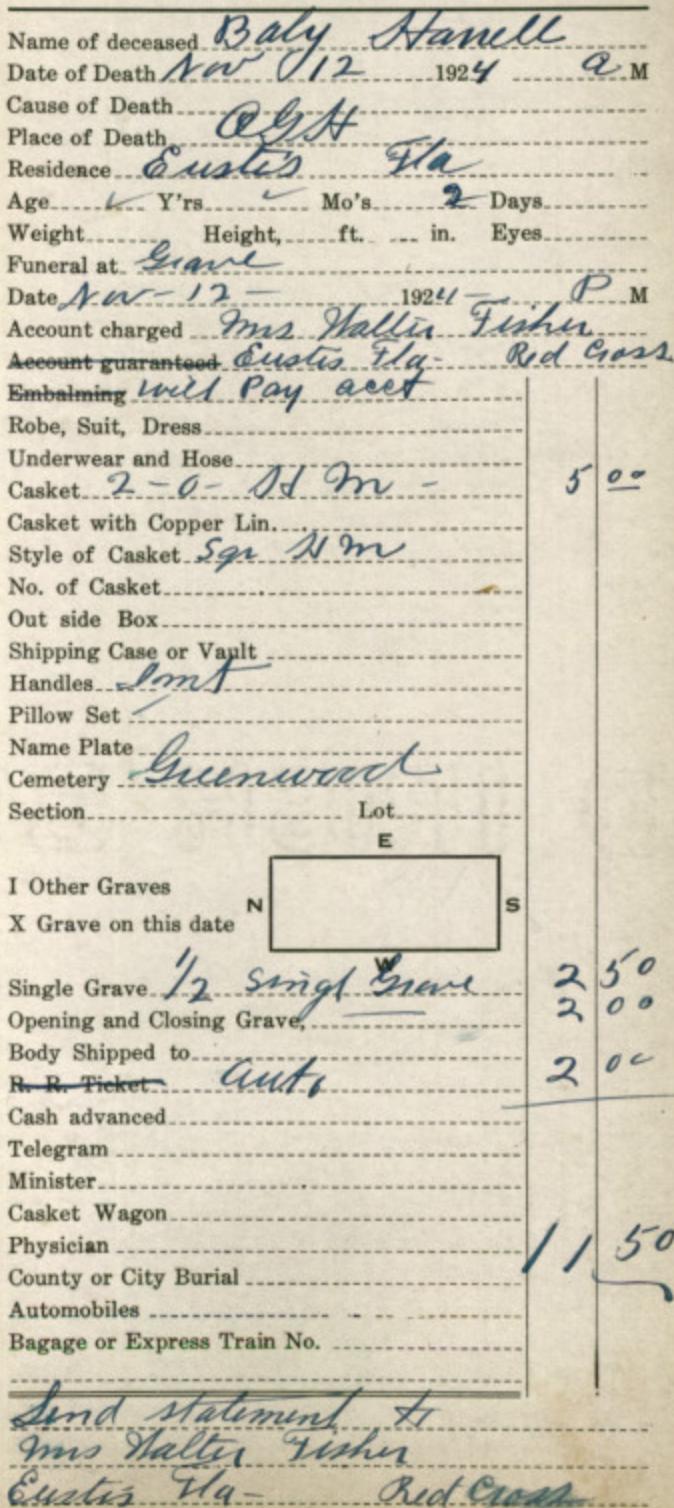 Name of deceased Baby Harrell
Date of Death Nov 12 1924 a M
Cause of Death
Place of Death OGH
Residence Eustis Fla
Age ✓ Y'rs ✓ Mo's 2 Days
Weight Height, ft. in. Eyes
Funeral at Grave
Date Nov-12- 1924- P M
Account charged Mrs Walter Fisher
Account guaranteed Eustis Fla- Red Cross
Embalming will Pay acct
Robe, Suit, Dress
Underwear and Hose
Casket 2-0- St M - 5 00
Casket with Copper Lin.
Style of Casket Sqr St M
No. of Casket
Out side Box
Shipping Case or Vault
Handles
Pillow Set
Name Plate
Cemetery Greenwood
Section Lot
E
I Other Graves
N S
X Grave on this date
W
Single Grave 1/2 Singl Grave 2 50
Opening and Closing Grave, 2 00
Body Shipped to
R. R. Ticket auto 2 00
Cash advanced
Telegram
Minister
Casket Wagon
Physician 11 50
County or City Burial
Automobiles
Bagage or Express Train No.
Send statement to
Mrs Walter Fisher
Eustis Fla- Red Cross